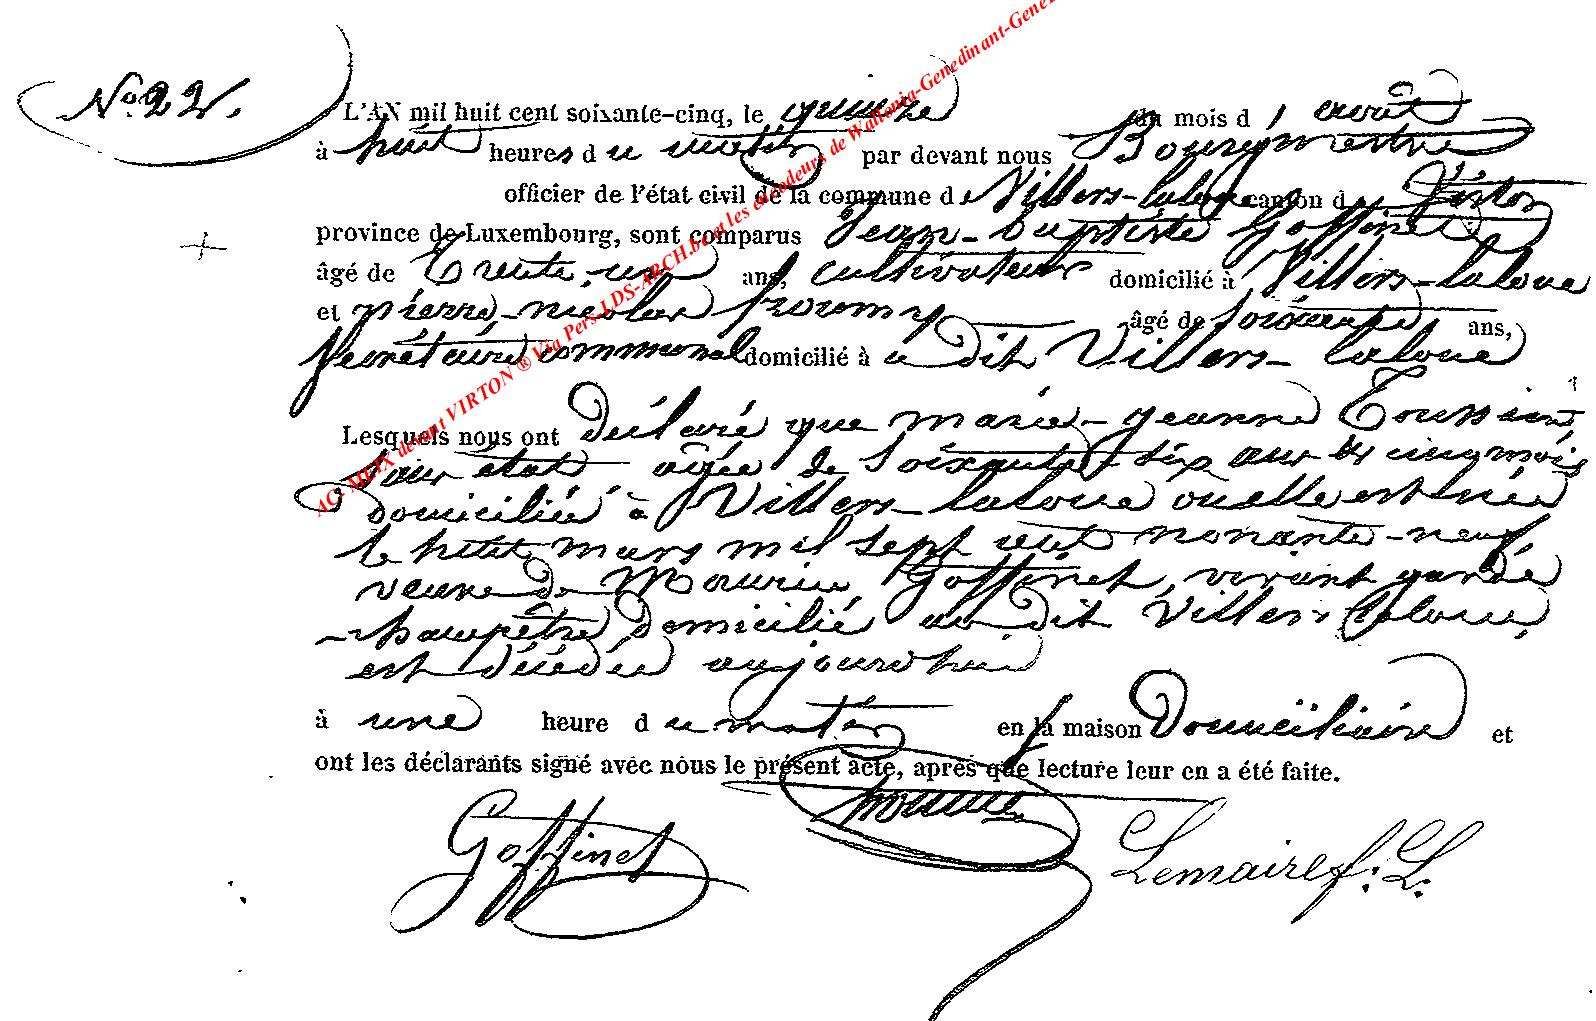 No. 22.
L'AN mil huit cent soixante-cinq, le quinze du mois d'août
à huit heures du matin par devant nous Bourgmestre
officier de l'état civil de la commune de Villers-laloue canton de Virton
province de Luxembourg, sont comparus Jean-baptiste Goffinet
âgé de Trente-un ans, cultivateur domicilié à Villers-laloue
et pierre-nicolas âgé de soixante ans,
Secrétaire communal domicilié à u dit Villers-laloue
Lesquels nous ont déclaré que marie-jeanne Toussaint
sans état âgée de soixante-six ans cinq mois
domiciliée à Villers-laloue où elle est née
le huit mars mil sept cent nonante-neuf
veuve de Maurice Goffinet, vivant garde
champêtre, domicilié au dit Villers-laloue,
est décédée aujourd'hui
à une heure du matin en la maison Domiciliaire et
ont les déclarants signé avec nous le présent acte, après que lecture leur en a été faite.
Goffinet
Lemaire f: L:
AC-MEIX devant VIRTON ® Via Pers-LDS-ARCH.be et les encodeurs de Wallonia-Genedinant-Gene